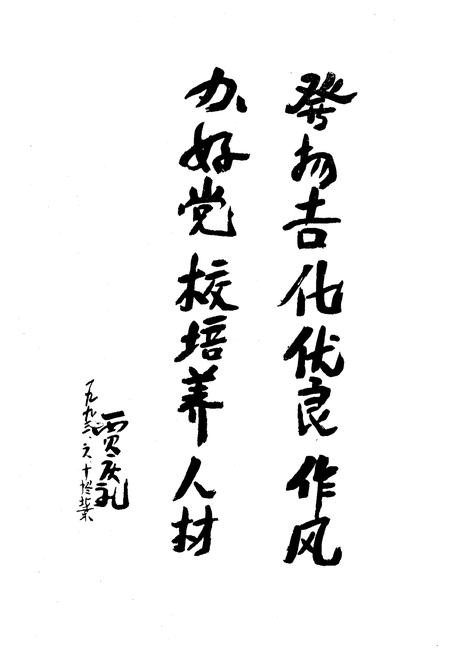 發扬吉化优良作风
办好党校培养人材
贾庆礼
一九九三、六、十